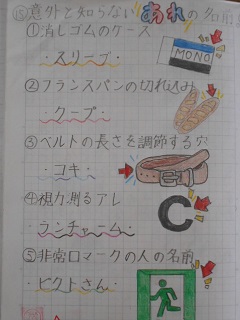 ⑮意外と知らないあれの名前
①消しゴムのケース
・スリーブ・
MONO
②フランスパンの切れ込み
・クープ・
③ベルトの長さを調節する穴
・コキ・
④視力測るアレ
・ランチャーム・
⑤非常口マークの人の名前
・ピクトさん・